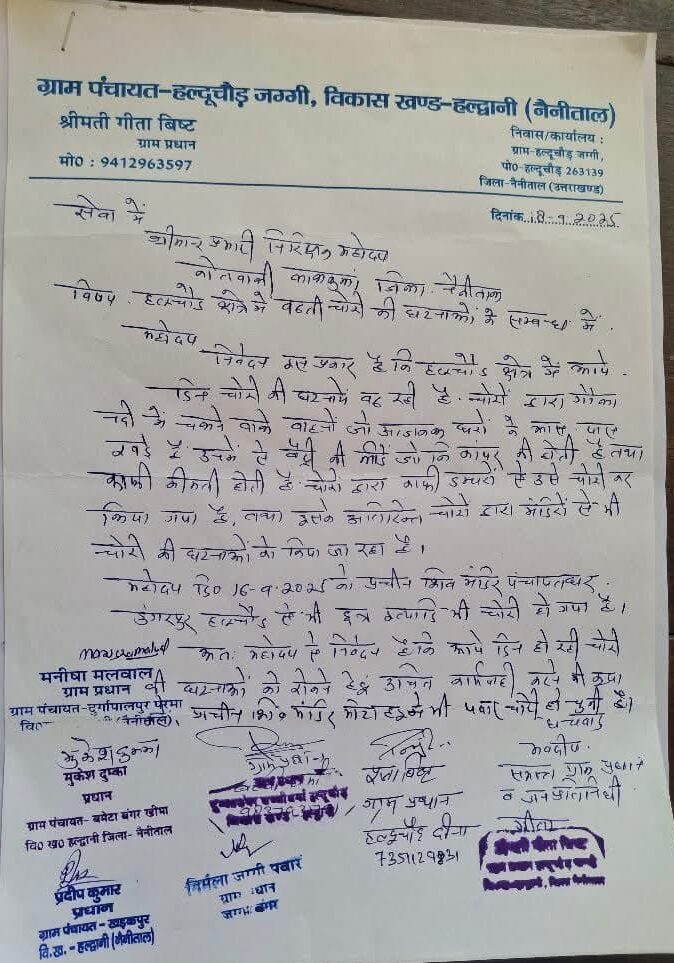 ग्राम पंचायत-हल्दूचौड़ जग्गी, विकास खण्ड-हल्द्वानी (नैनीताल)
श्रीमती गीता बिष्ट
ग्राम प्रधान
मो0 : 9412963597
निवास/कार्यालय :
ग्राम-हल्दूचौड़ जग्गी,
पो0-हल्दूचौड़ 263139
जिला-नैनीताल (उत्तराखण्ड)
दिनांक 18-9-2025
सेवा में
श्रीमान प्रभारी निरिक्षक महोदय
कोतवाली लालकुआं, जिला. नैनीताल
विषय. हल्दूचौड़ क्षेत्र में बढती चोरी की घटनाओं के सम्बन्ध में.
महोदय
निवेदन इस प्रकार है कि हल्दूचौड़ क्षेत्र में आये
दिन चोरी की घटनायें बढ रही है. चोरों द्वारा गौला
नदी में चलने वाले वाहनों जो आजकल घरों के आस पास
खड़े हैं उनमें से बैट्री की लीडें जो कि कापर की होती है तथा
काफी कीमती होती है. चोरों द्वारा काफी डम्परों से उसे चोरी कर
लिया गया है, तथा इसके अतिरिक्त चोरों द्वारा मंदिरों से भी
चोरी की घटनाओं को किया जा रहा है।
महोदय दि0 16-9-2025 को प्राचीन शिव मंदिर पंचायतघर.
डुंगरपुर हल्दूचौड़ से भी छत्र इत्यादि भी चोरी हो गया है।
अतः महोदय से निवेदन है कि आये दिन हो रही चोरी
की घटनाओं को रोकने हेतु उचित कार्यवाही करने की कृपा
प्राचीन शिव मंदिर से भी चोरी हो चुकी है।
धन्यवाद
मनीषा मलवाल
ग्राम प्रधान
ग्राम पंचायत-दुर्गापालपुर परमा
मुकेश दुम्का
मुकेश दुम्का
प्रधान
ग्राम पंचायत- बमेटा बंगर खीमा
वि0 ख0 हल्द्वानी जिला- नैनीताल
ग्राम प्रधान
हल्दूचौड़ दीना
7351129831
समस्त ग्राम प्रधान
व जनप्रतिनिधी
श्रीमती गीता बिष्ट
प्रदीप कुमार
प्रधान
ग्राम पंचायत - खड़कपुर
वि.ख. - हल्द्वानी (नैनीताल)
निर्मला जग्गी पवार
ग्राम प्रधान
जग्गी बंगर